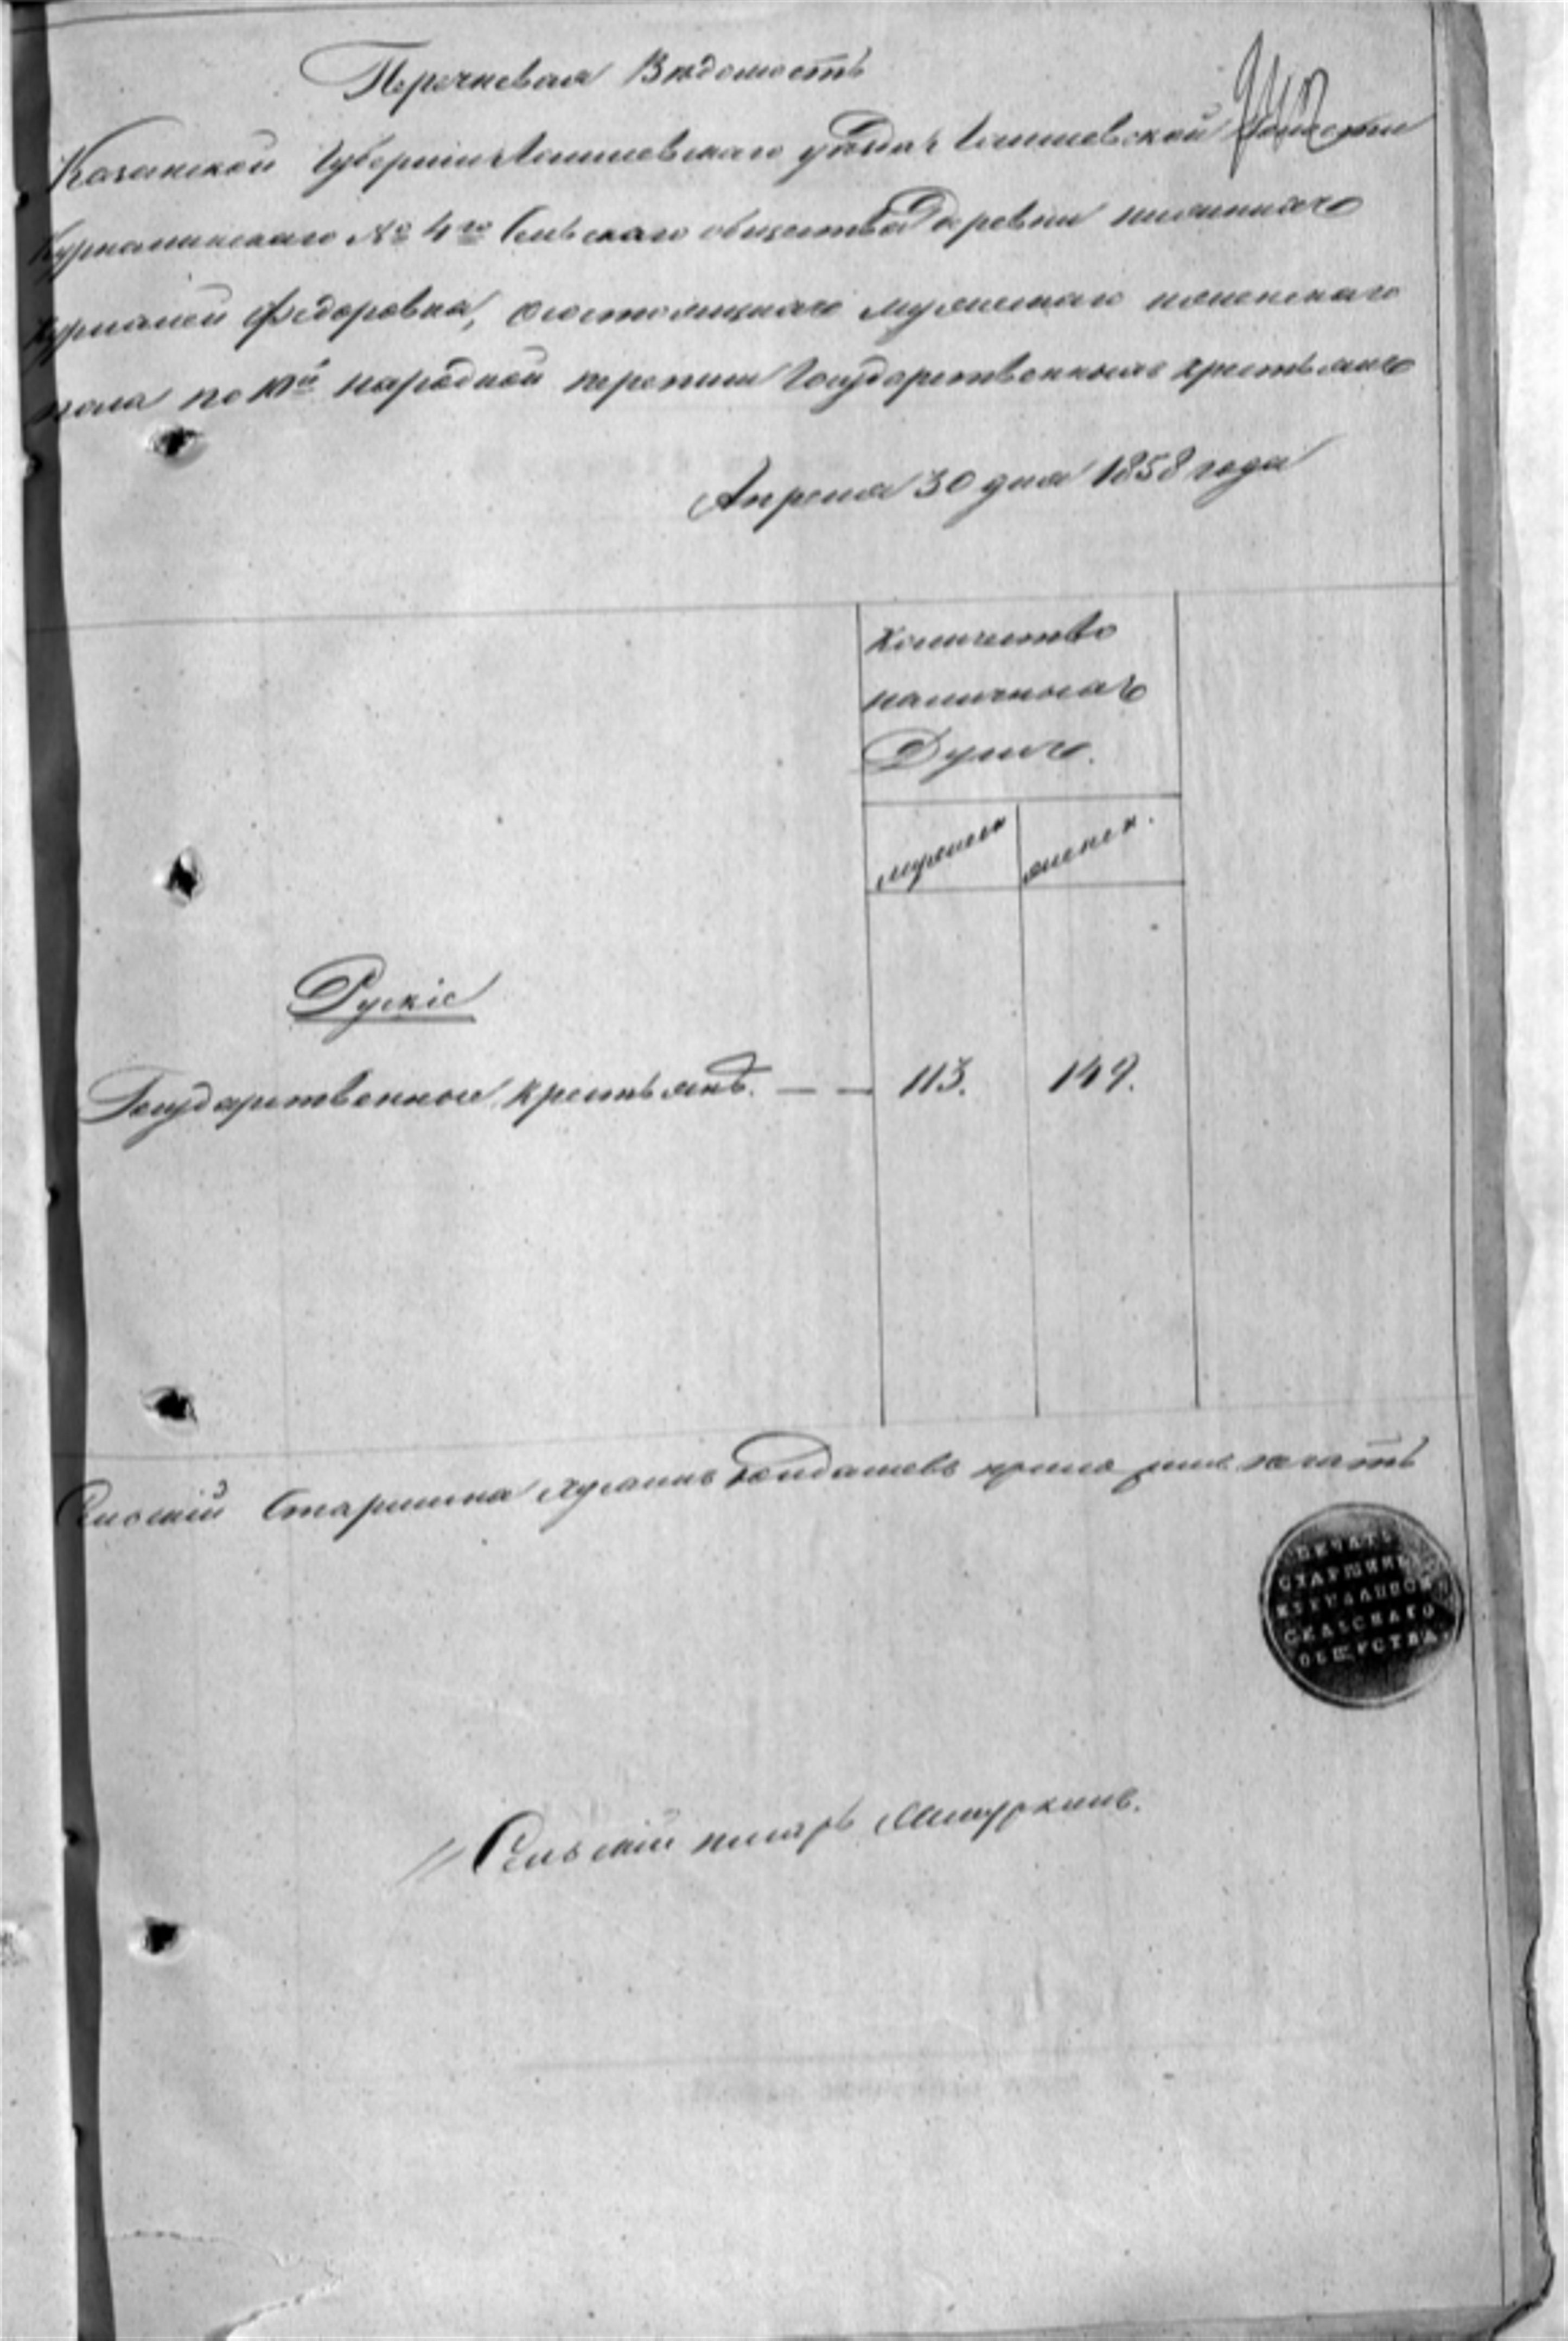 Перечневая Вѣдомость
Казанской Губерніи Лаишевскаго уѣзда Лаишевской Волости
Курналинскаго № 4го Сельскаго общества Деревни
Курналей Федоровка, состоящаго мужескаго женскаго
пола по 10й народной переписи Государственныхъ крестьянъ
Апреля 30 дня 1858 года
Количество
наличныхъ
Душъ.
мужеск
женск.
Рускіе
Государственные крестьянъ. — — 113. 149.
Сельскій Старшина печать
ПЕЧАТЬ
СТАРШИНЫ
КУРНАЛИНСК
СЕЛЬСКАГО
ОБЩЕСТВА.
Сельскій писарь